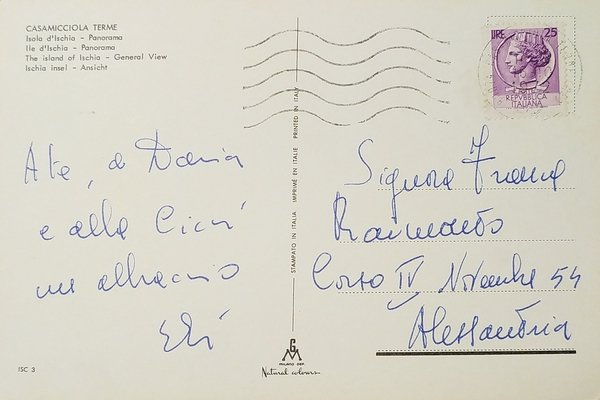 CASAMICCIOLA TERME
Isola d'Ischia - Panorama
Ile d'Ischia - Panorama
The island of Ischia - General View
Ischia insel - Ansicht
LIRE 25
REPVBBLICA
ITALIANA
STAMPATO IN ITALIA IMPRIMÉ EN ITALIE PRINTED IN ITALY
A te, a Daria
e alla Cicci
un abbraccio
Signora Franca
Raimondo
Corso IV Novembre 54
Alessandria
MILANO DEP.
Natural colours
ISC 3